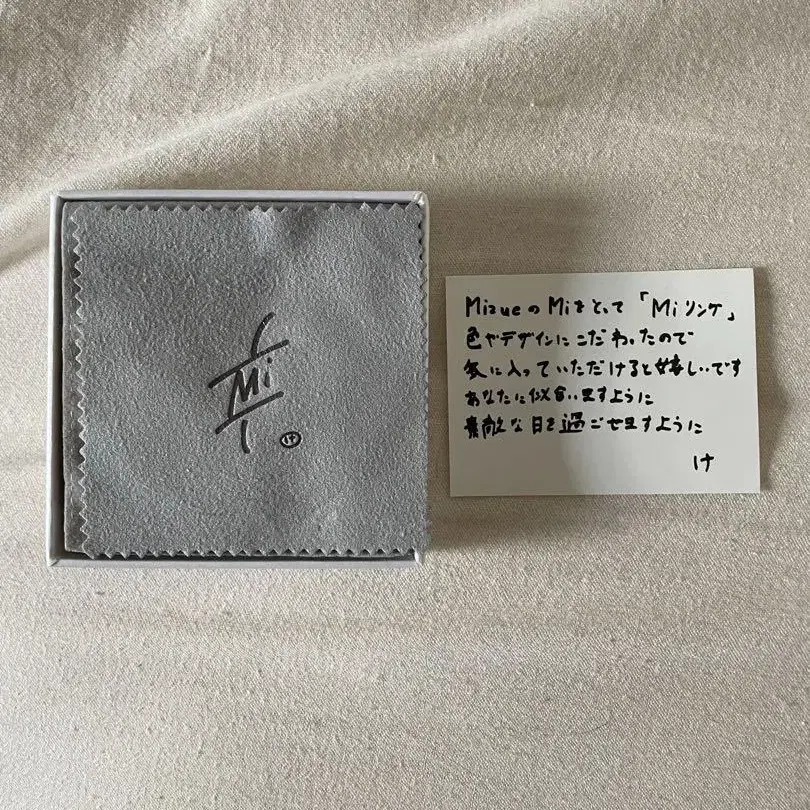 Mi
け
MizueのMiをとって「Miリング」
色やデザインにこだわったので
気に入っていただけると嬉しいです
あなたに似合いますように
素敵な日を過ごせますように
け